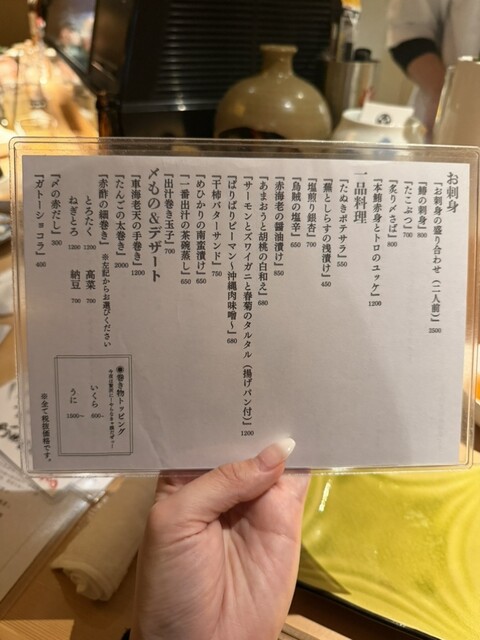 お刺身
『お刺身の盛り合わせ（二人前）』 2500
『鰆の刺身』 800
『たこぶつ』 700
『炙り〆さば』 800
『本鮪赤身とトロのユッケ』 1200
一品料理
『たぬきポテサラ』 550
『蕪としらすの浅漬け』 450
『塩煎り銀杏』 700
『烏賊の塩辛』 650
『赤海老の醤油漬け』 650
『あまおうと胡桃の白和え』 680
『サーモンとズワイガニと春菊のタルタル（揚げパン付）』 1200
『ぱりぱりピーマン〜沖縄肉味噌〜』 680
『干柿バターサンド』 750
『めひかりの南蛮漬け』 650
『一番出汁の茶碗蒸し』 650
『出汁巻き玉子』 700
〆もの&デザート
『車海老天の手巻き』 1200
『たんごの太巻き』 2000
『赤酢の細巻き』 ※左記からお選びください
とろたく 1300 高菜 700
ねぎとろ 1200 納豆 700
『〆の赤だし』 300
『ガトーショコラ』 400
◉巻き物トッピング
いくら 600~
うに 1500~
※全て税抜価格です。